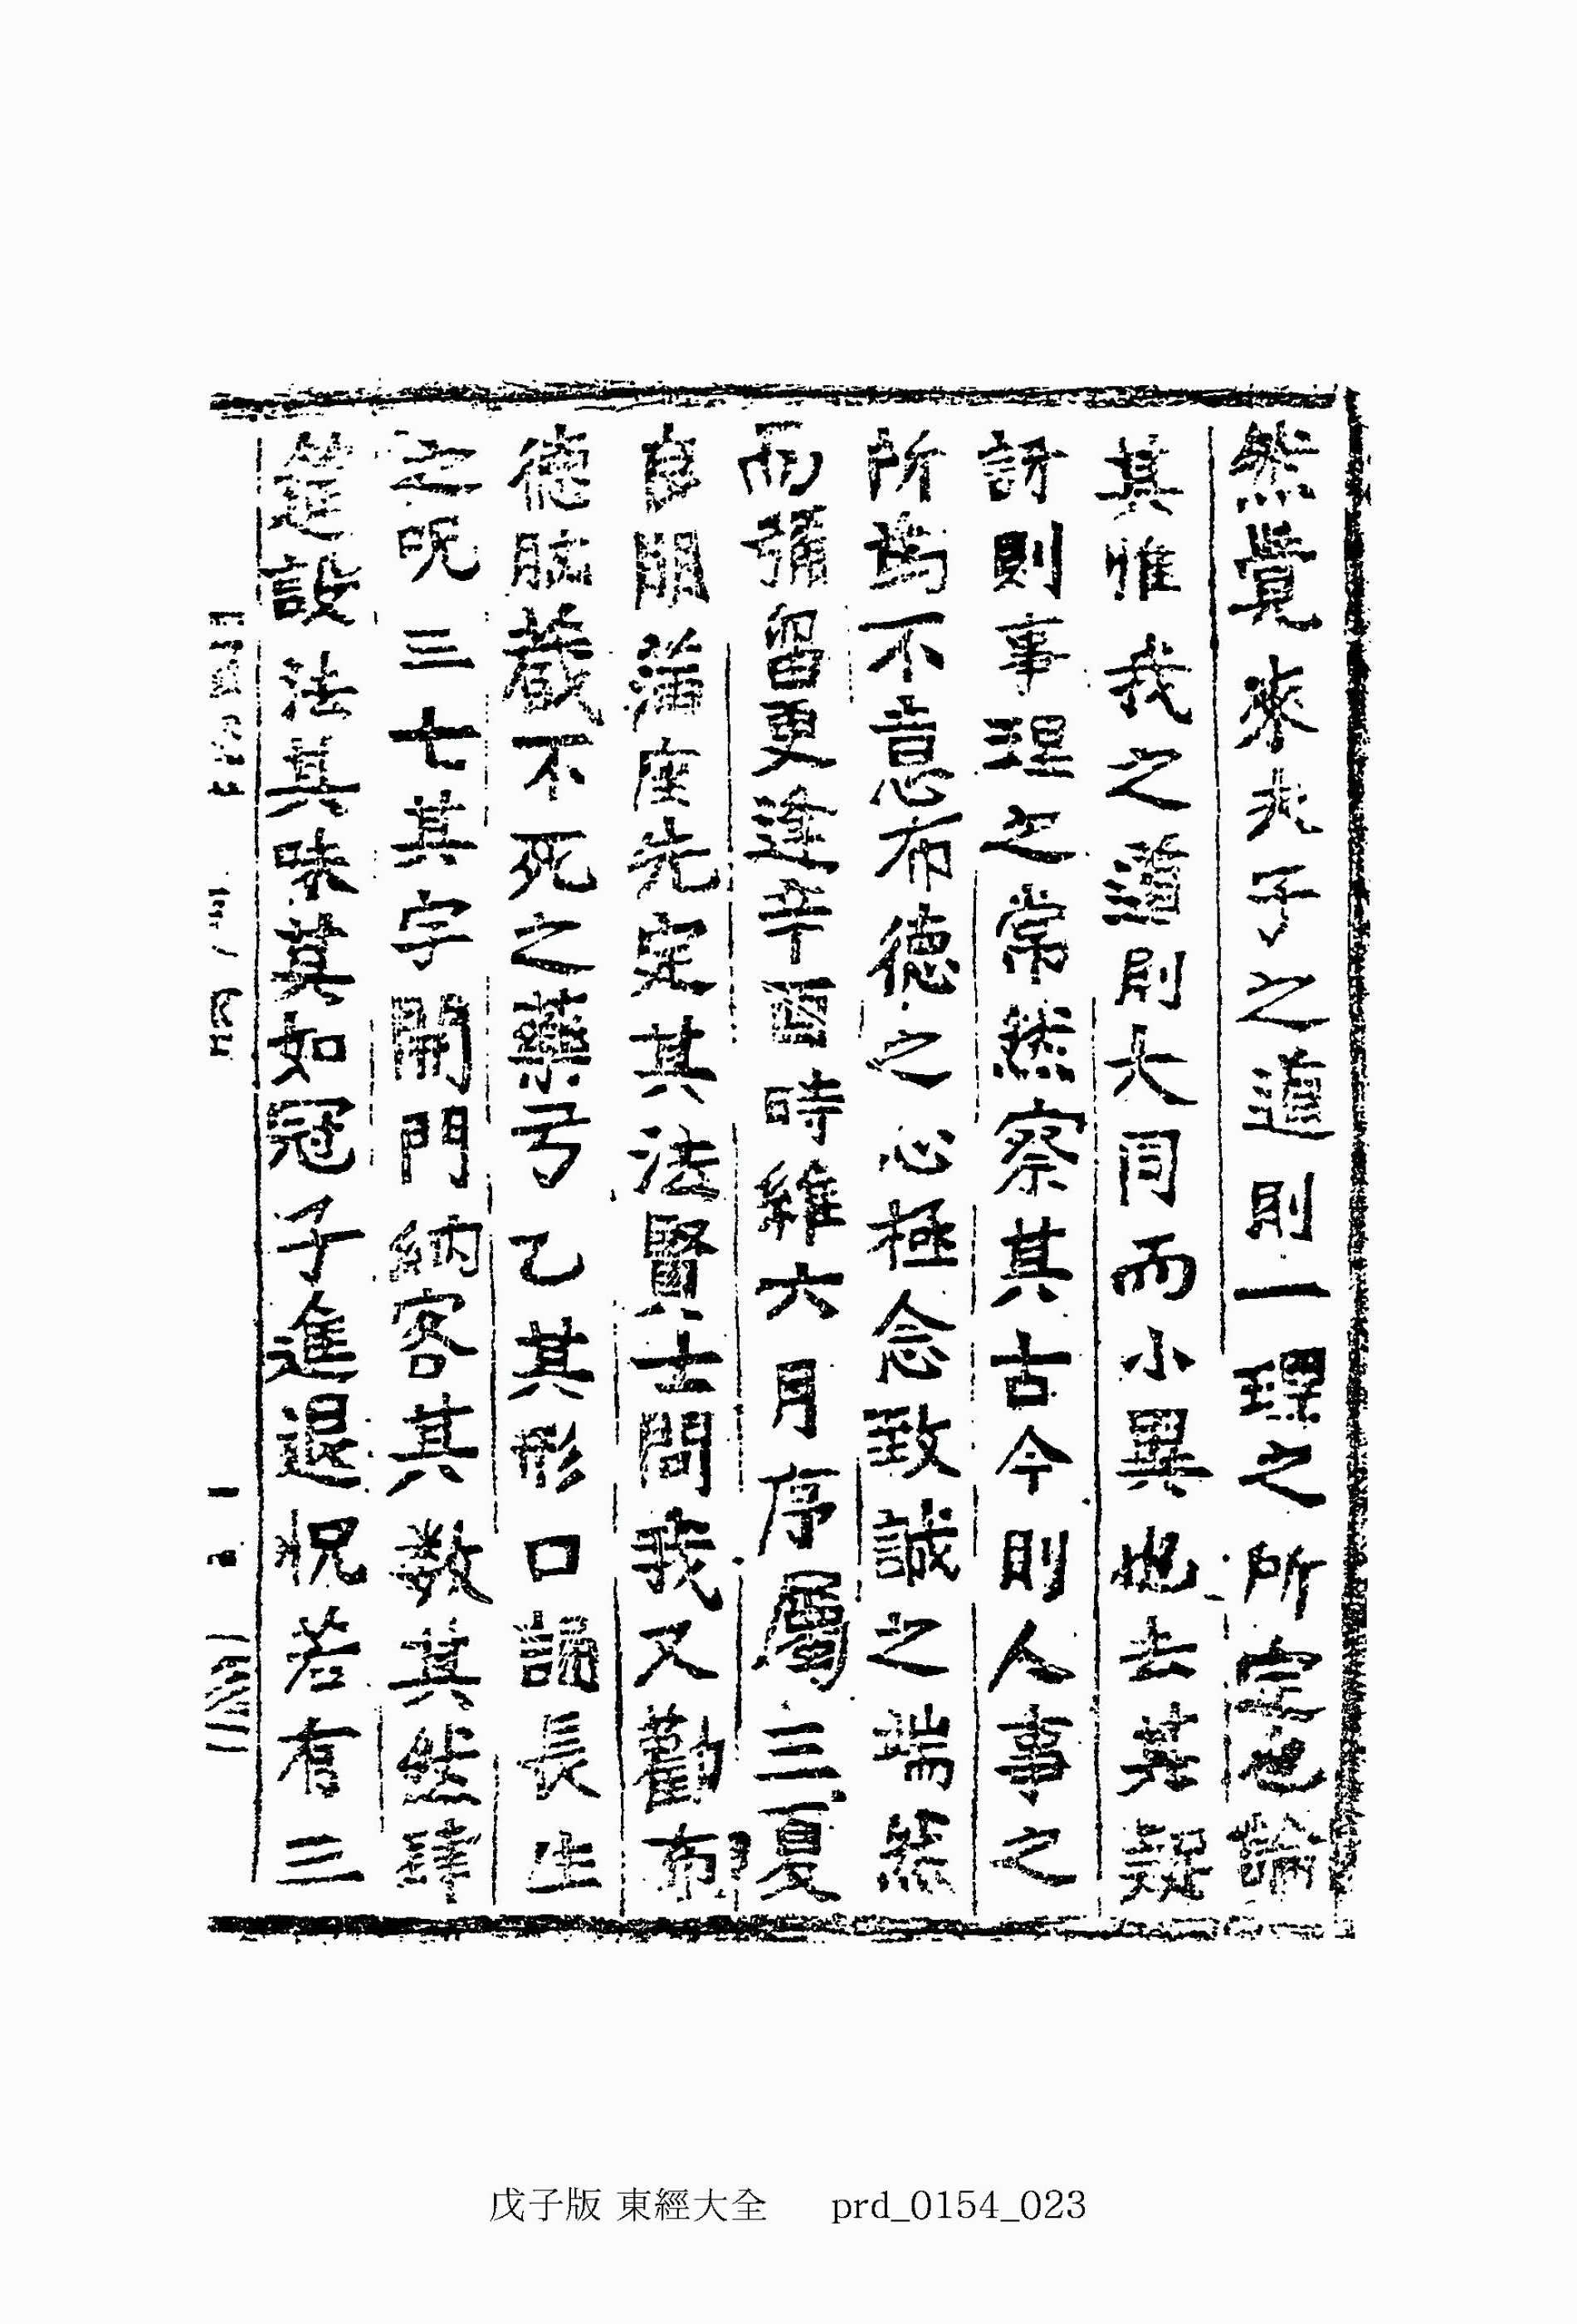 然覺來夫子之道則一理之所定也論
其惟我之道則大同而小異也去其疑
訝則事理之常然察其古今則人事之
所爲不意布德之心極念致誠之端然
而彌留更逢辛酉時維六月序屬三夏
良朋滿座先定其法賢士問我又勸布
德胸藏不死之藥弓乙其形口誦長生
之呪三七其字開門納客其数其然肆
筵設法其味其如冠子進退怳若有三
戊子版 東經大全 prd_0154_023